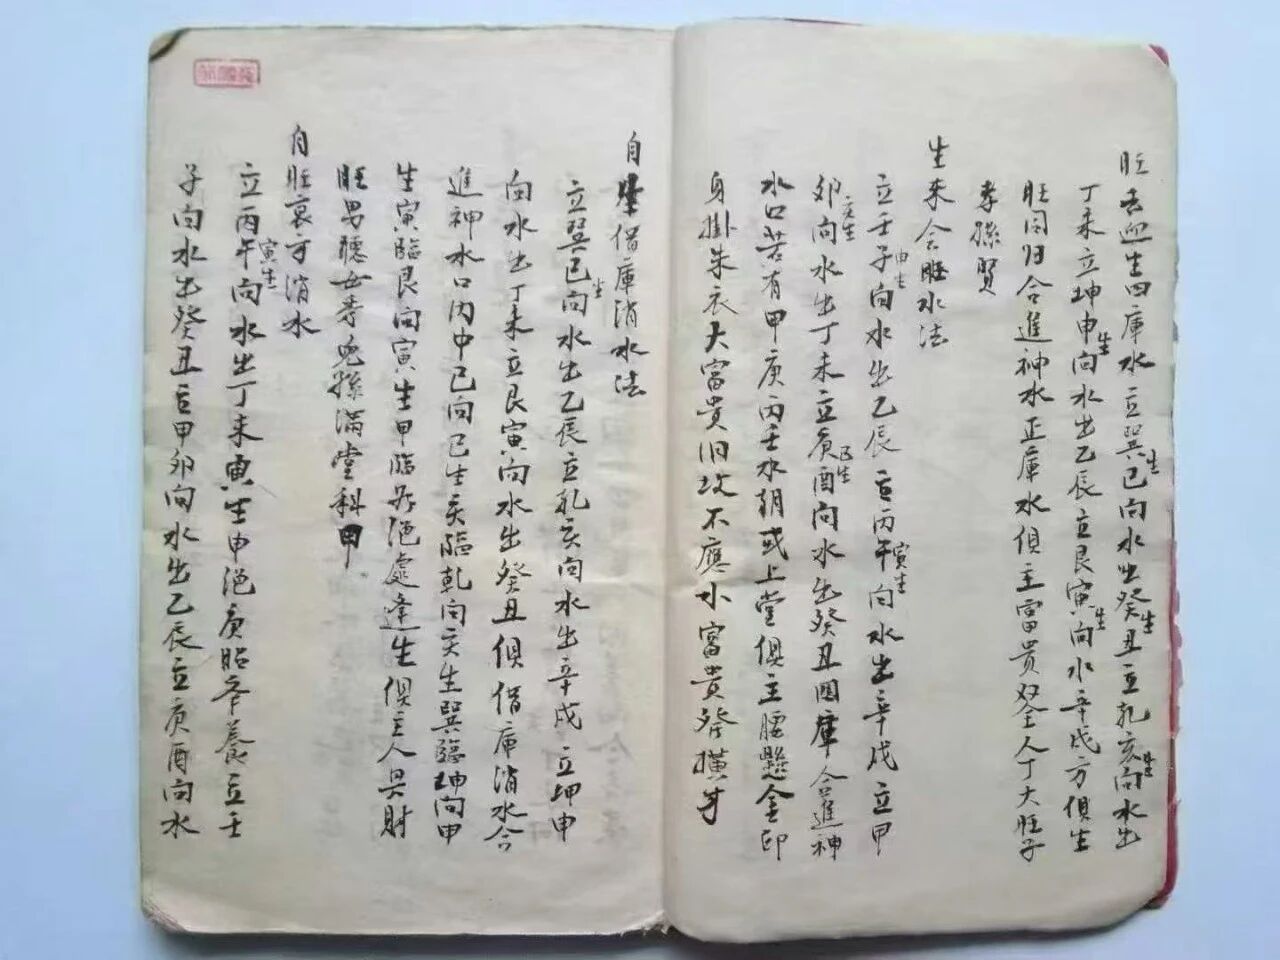 旺去迎生四庫水立巽巳向水出癸丑立乾亥向水出
生
生
生
丁未立坤申向水出乙辰立艮寅向水辛戌方俱生
生
生
旺同归合進神水正庫水俱主富贵双全人丁大旺子
孝孫賢
生来会旺水法
立壬子向水出乙辰立丙午向水出辛戌立甲
申生
寅生
卯向水出丁未立庚酉向水出癸丑四庫合進神
亥生
巳生
水口若有甲庚丙壬水朝或上堂俱主腰懸金印
身掛朱衣大富貴旧坟不應小富貴發横才
自生借庫消水法
立巽巳向水出乙辰立乾亥向水出辛戌立坤申
生
向水出丁未立艮寅向水出癸丑俱借庫消水合
進神水口内中巳向巳生亥臨乾向亥生巽臨坤向申
生寅臨艮向寅生申臨於絕處逢生俱主人興財
旺男聰女秀兒孫满堂科甲
自旺衰可消水
立丙午向水出丁未寅生申絕庚胎辛養立壬
寅生
子向水出癸丑立甲卯向水出乙辰立庚酉向水